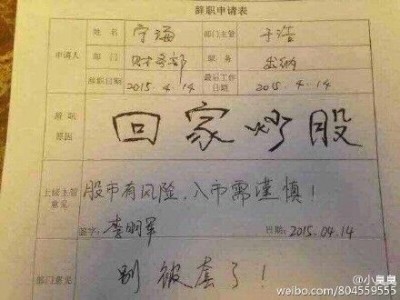 辞职申请表
姓名 宁海 部门主管 于浩
申请人 部门 财务部 职务 出纳
辞职日期 2015.4.14 最后工作日期 2015.4.14
辞职原因 回家炒股
上级主管意见 股市有风险,入市需谨慎!
签字: 李明军 日期: 2015.04.14
部门意见 别被套了!
@小臭臭
weibo.com/804559555